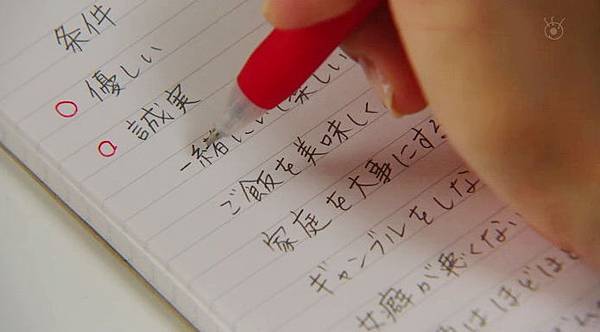 条件
優しい
誠実
一緒にいて楽しい
ご飯を美味しく
家庭を大事にする
ギャンブルをしな
女癖が悪くない
はほどほど